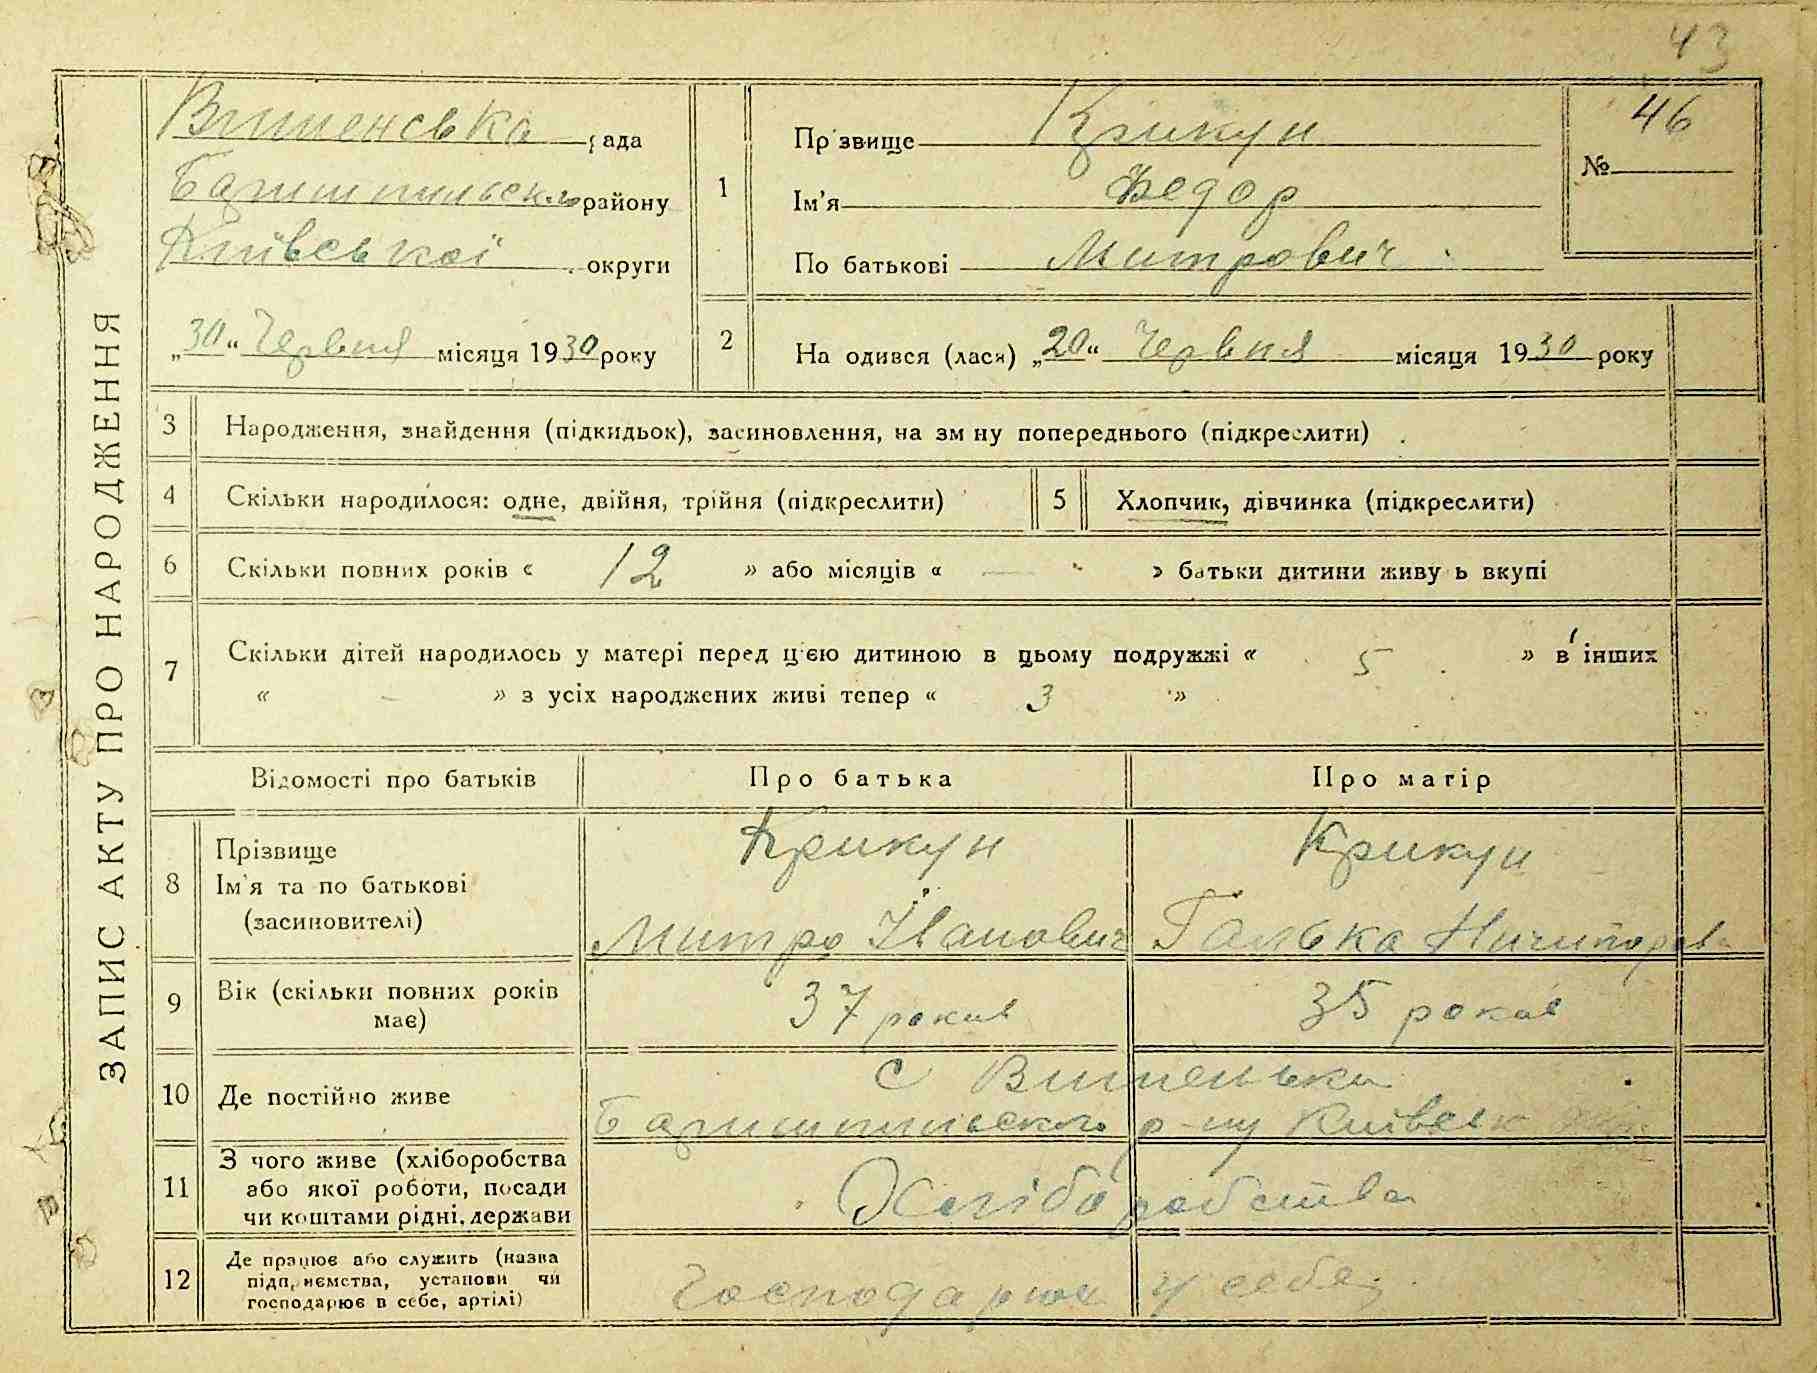 43
ЗАПИС АКТУ ПРО НАРОДЖЕННЯ
Вишенська рада
Баришпільського району
Київської округи
„30“ Червня місяця 1930 року
1
Прізвище Крикун
Ім'я Федор
По батькові Митрович
46
№
2
На одився (лася) „20“ Червня місяця 1930 року
3 Народження, знайдення (підкидьок), засиновлення, на зм ну попереднього (підкреслити)
4 Скільки народилося: одне, двійня, трійня (підкреслити)
5 Хлопчик, дівчинка (підкреслити)
6 Скільки повних років « 12 » або місяців « — » батьки дитини живу ь вкупі
7 Скільки дітей народилось у матері перед ц'ею дитиною в цьому подружжі « 5 » в інших
« - » з усіх народжених живі тепер « 3 »
Відомості про батьків Про батька Про матір
8 Прізвище
Ім'я та по батькові
(засиновителі)
Крикун
Митро Іванович
Крикун
Галька Ничипоров
9 Вік (скільки повних років
має)
37 років
35 років
10 Де постійно живе
с Вишеньки
Баришпільского р-ну Київськ
11 З чого живе (хліборобства
або якої роботи, посади
чи коштами рідні, держави
Хліборобства
12 Де працює або служить (назва
підприємства, установи чи
господарює в себе, артілі)
Господарює у себе